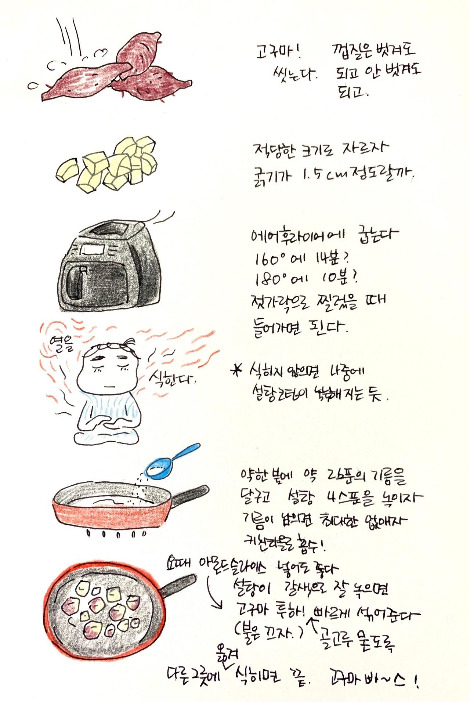 고구마! 껍질은 벗겨도
씻는다. 되고 안 벗겨도
되고.
적당한 크기로 자르자
굵기가 1.5cm 정도랄까.
에어후라이어에 굽는다
160°에 14분?
180°에 10분?
젓가락으로 찔렀을 때
들어가면 된다.
열을
식힌다.
* 식히지 않으면 나중에
설탕코팅이 해지는 듯.
약한 불에 약 2스푼의 기름을
달구고 설탕 4스푼을 녹이자
기름이 남으면 최대한 없애자
키친타올로 흡수!
요때 아몬드슬라이스 넣어도 좋다
설탕이 갈색으로 잘 녹으면
고구마 투하! 빠르게 섞어준다
(불은 끄자.) 골고루 묻도록
옮겨
다른 그릇에 식히면 끝. 고구마 빠~스!